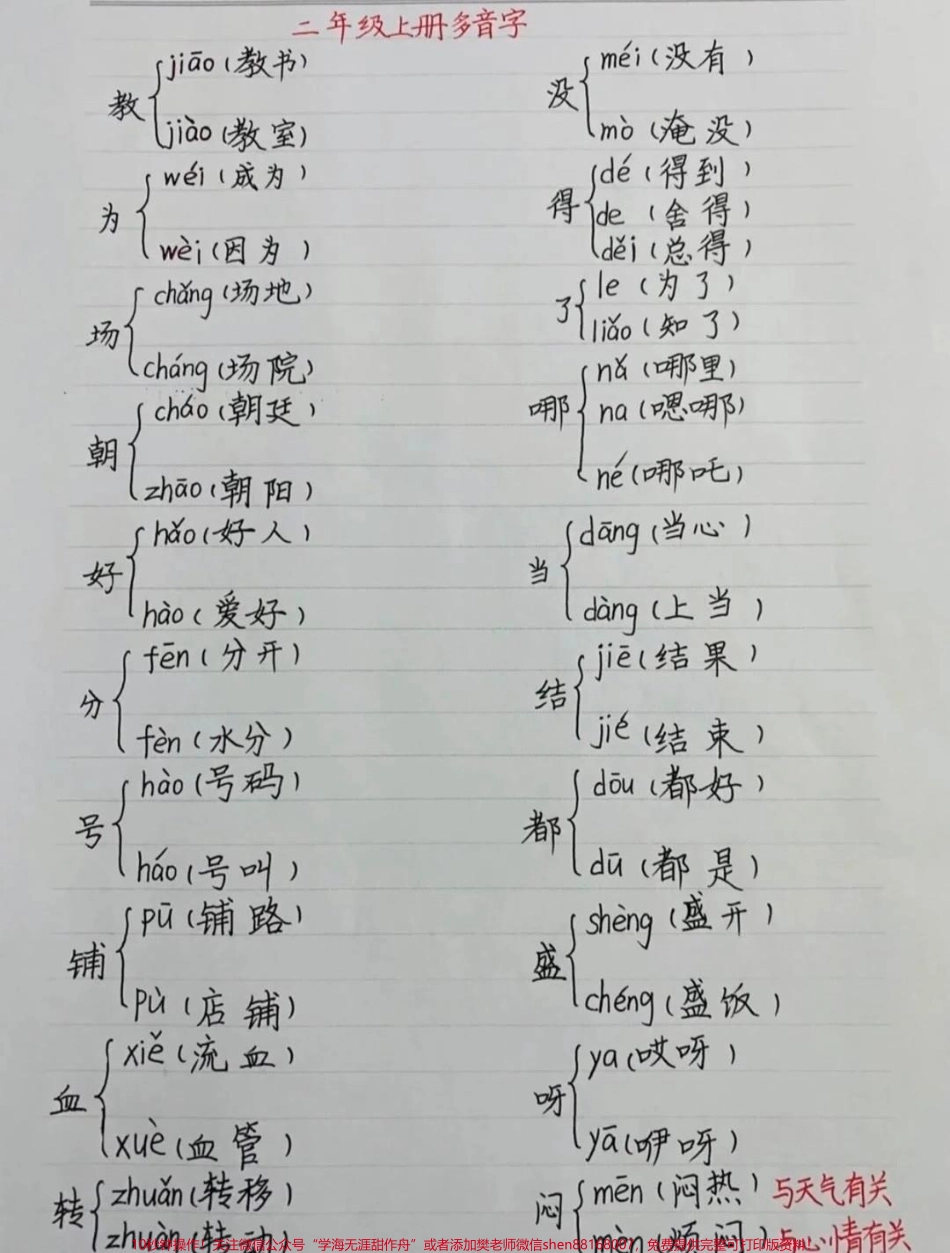 二年级上册多音字
教
jiāo(教书)
jiào(教室)
为
wéi(成为)
wèi(因为)
场
chǎng(场地)
cháng(场院)
朝
cháo(朝廷)
zhāo(朝阳)
好
hǎo(好人)
hào(爱好)
分
fēn(分开)
fèn(水分)
号
hào(号码)
háo(号叫)
铺
pū(铺路)
pù(店铺)
血
xiě(流血)
xuè(血管)
转
zhuǎn(转移)
zhuàn(转动)
没
méi(没有)
mò(淹没)
得
dé(得到)
de(舍得)
děi(总得)
了
le(为了)
liǎo(知了)
哪
nǎ(哪里)
na(嗯哪)
né(哪吒)
当
dāng(当心)
dàng(上当)
结
jiē(结果)
jié(结束)
都
dōu(都好)
dū(都是)
盛
shèng(盛开)
chéng(盛饭)
呀
ya(哎呀)
yā(咿呀)
闷
mēn(闷热) 与天气有关
mèn(烦闷) 与心情有关
10秒钟操作！关注微信公众号“学海无涯甜作舟”或者添加樊老师微信shen88168007，免费提供完整可打印版资料！